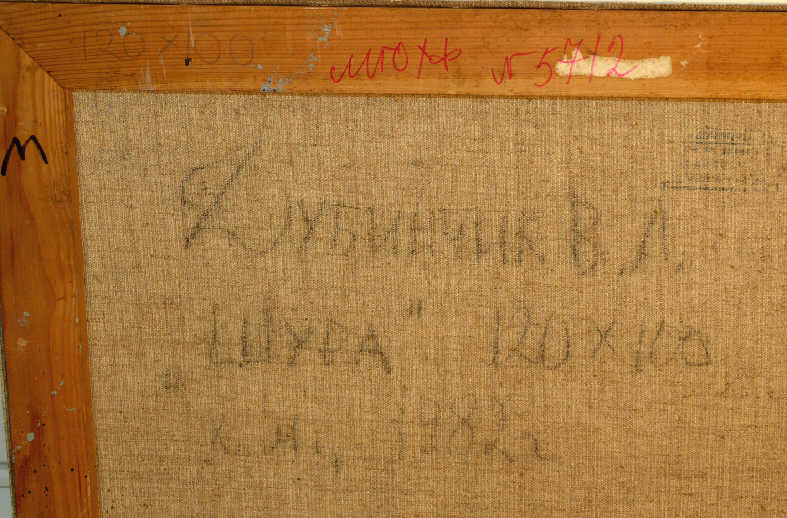 120×100
МЮХФ №5712
М
Дубинчик В. Л.
"ШУРА" 120×100
х. м., 1982г